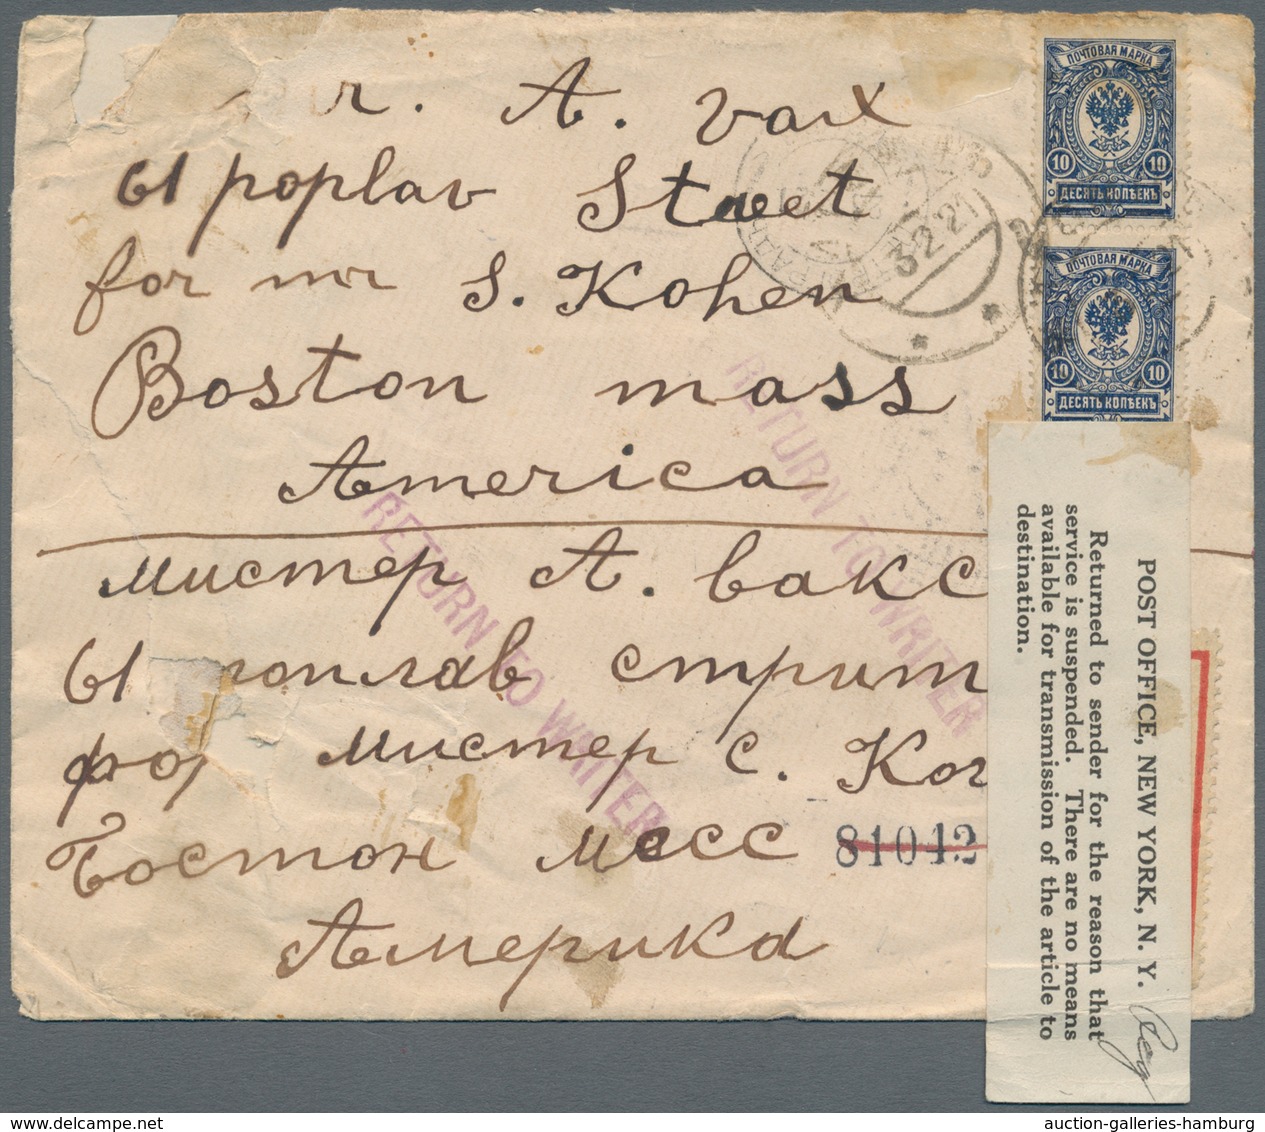 r. A. vax
61 poplav Street
for mr S. Kohen
Boston mass
America
мистер А. вакс
61 поплав стрит
фор мистер с. Ког
Бостон масс
Америка
81042
RETURN TO WRITER
RETURN TO WRITER
3 2 21
ПОЧТОВАЯ МАРКА
10 10
ДЕСЯТЬ КОПѢЕКЪ
ПОЧТОВАЯ МАРКА
10 10
ДЕСЯТЬ КОПѢЕКЪ
POST OFFICE, NEW YORK, N. Y.
Returned to sender for the reason that
service is suspended. There are no means
available for transmission of the article to
destination.
Reg
auction-galleries-hamburg